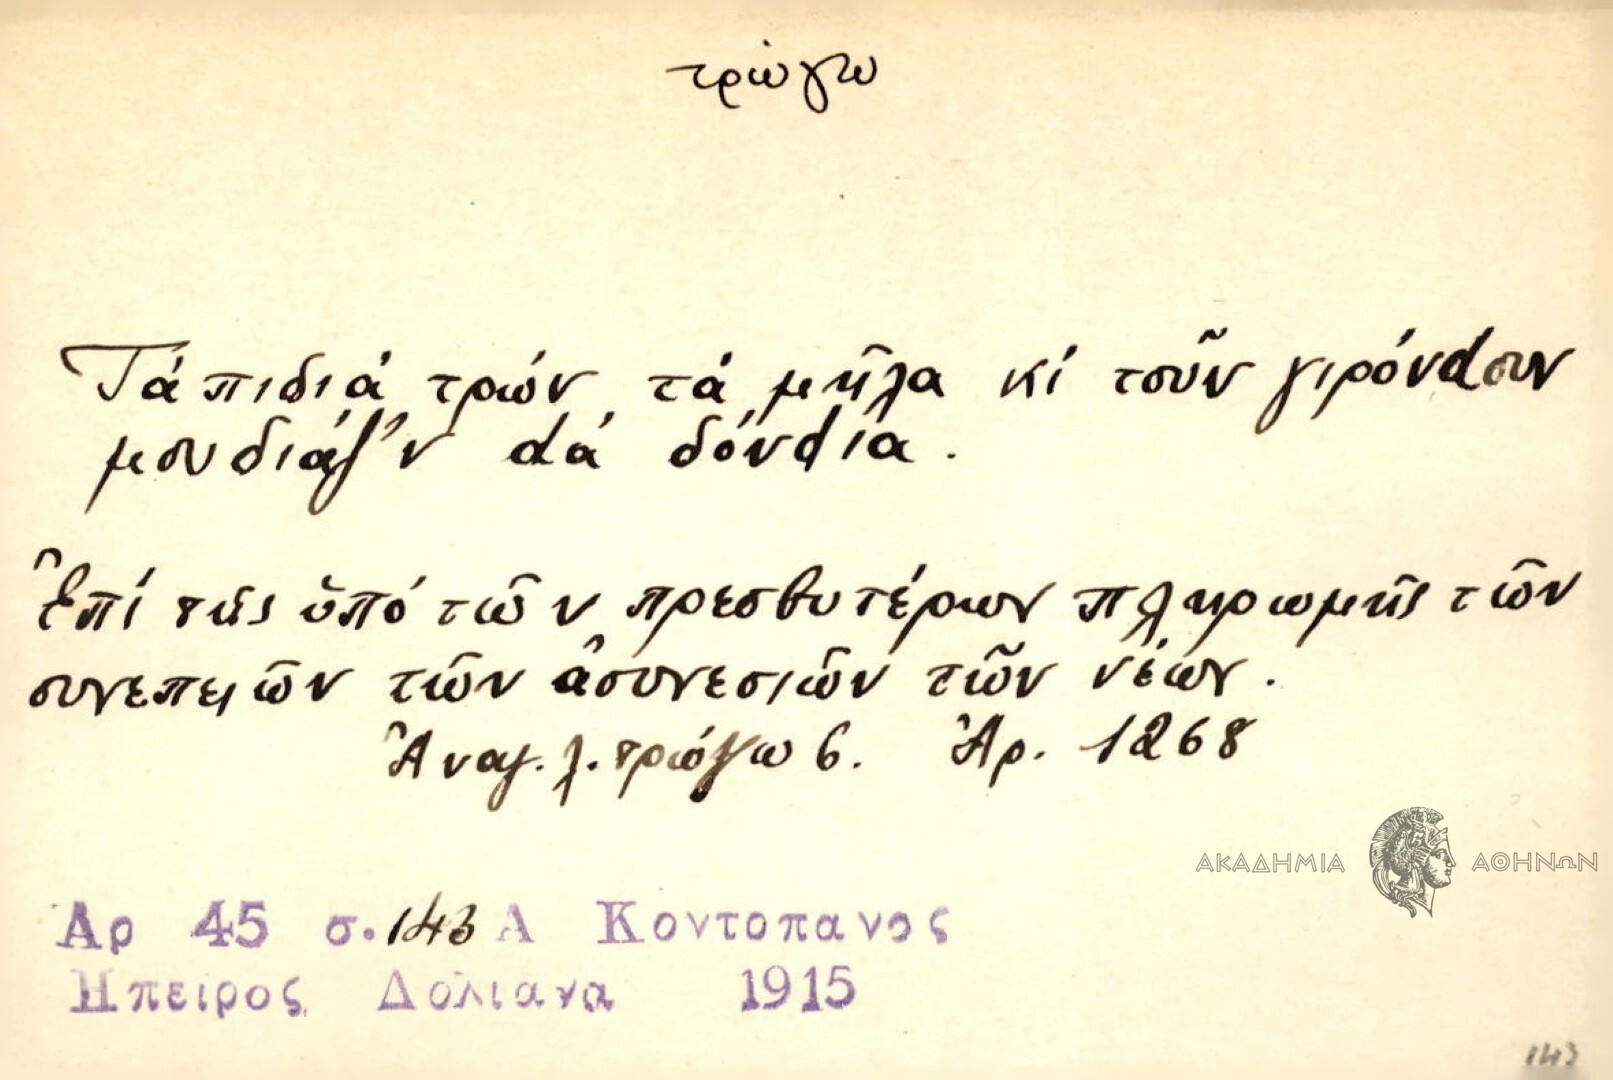 τρώγω
Τά πιδιά τρών τά μῆλα κί τσῦν γιρόνdσυν
μουδιάζ'ν dά δόνdια.
Ἐπί τῆς ὑπό τῶν πρεσβυτέρων πληρωμῆς τῶν
συνεπειῶν τῶν ἀσυνεσιῶν τῶν νέων.
Ἀναγ. λ. τρώγω 6. Ἀρ. 1268
ΑΚΑΔΗΜΙΑ ΑΘΗΝΩΝ
Αρ 45 σ. 143 Α Κοντοπανος
Ηπειρος Δολιανα 1915
143